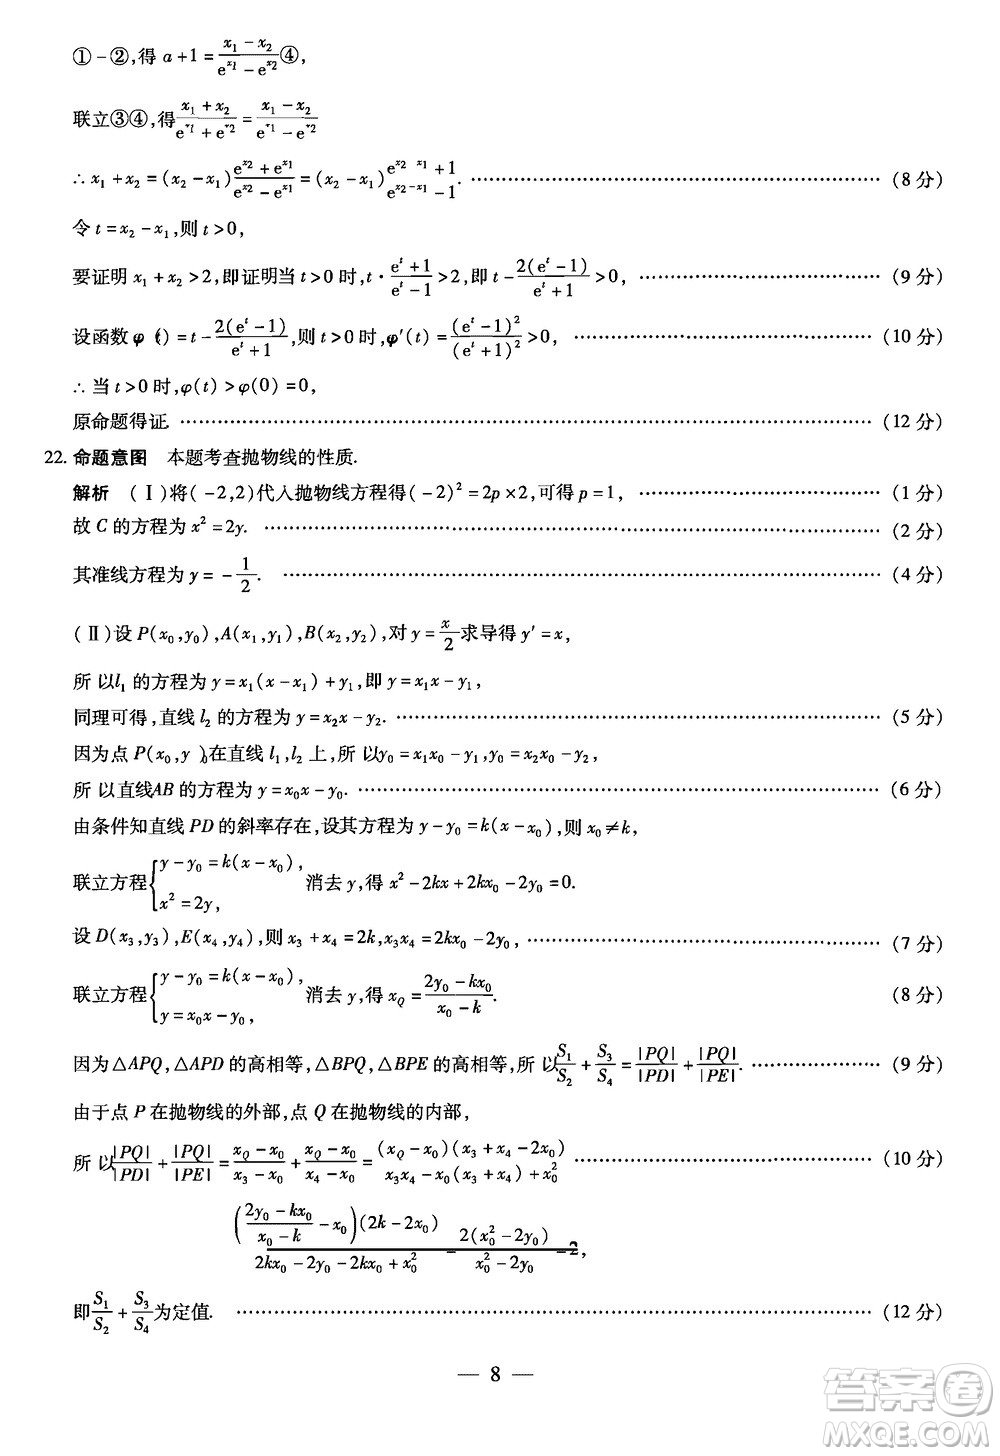 ①-②,得 a+1=\frac{x_1-x_2}{e^{x_1}-e^{x_2}}④,
联立③④,得\frac{x_1+x_2}{e^{x_1}+e^{x_2}}=\frac{x_1-x_2}{e^{x_1}-e^{x_2}}
∴ x_1+x_2=(x_2-x_1)\frac{e^{x_2}+e^{x_1}}{e^{x_2}-e^{x_1}}=(x_2-x_1)\frac{e^{x_2-x_1}+1}{e^{x_2-x_1}-1}. ………… (8 分)
令 t=x_2-x_1,则 t>0,
要证明 x_1+x_2>2,即证明当 t>0 时,t·\frac{e^t+1}{e^t-1}>2,即 t-\frac{2(e^t-1)}{e^t+1}>0, ………… (9 分)
设函数φ(t)=t-\frac{2(e^t-1)}{e^t+1},则 t>0 时,φ'(t)=\frac{(e^t-1)^2}{(e^t+1)^2}>0, ………… (10 分)
∴ 当 t>0 时,φ(t)>φ(0)=0,
原命题得证. ………… (12 分)
22. 命题意图 本题考查抛物线的性质.
解析 (Ⅰ)将(-2,2)代入抛物线方程得(-2)^2=2p×2,可得 p=1, ………… (1 分)
故 C 的方程为 x^2=2y. ………… (2 分)
其准线方程为 y=-\frac{1}{2}. ………… (4 分)
(Ⅱ)设 P(x_0,y_0),A(x_1,y_1),B(x_2,y_2),对 y=\frac{x}{2}求导得 y'=x,
所以l_1 的方程为 y=x_1(x-x_1)+y_1,即 y=x_1x-y_1,
同理可得,直线 l_2 的方程为 y=x_2x-y_2. ………… (5 分)
因为点 P(x_0,y_0)在直线 l_1,l_2 上,所以y_0=x_1x_0-y_1,y_0=x_2x_0-y_2,
所以直线AB 的方程为 y=x_0x-y_0. ………… (6 分)
由条件知直线 PD 的斜率存在,设其方程为 y-y_0=k(x-x_0),则 x_0≠k,
联立方程{y-y_0=k(x-x_0), x^2=2y, 消去 y,得 x^2-2kx+2kx_0-2y_0=0.
设 D(x_3,y_3),E(x_4,y_4),则 x_3+x_4=2k,x_3x_4=2kx_0-2y_0, ………… (7 分)
联立方程{y-y_0=k(x-x_0), y=x_0x-y_0, 消去 y,得 x_Q=\frac{2y_0-kx_0}{x_0-k}. (8 分)
因为△APQ,△APD 的高相等,△BPQ,△BPE 的高相等,所以\frac{S_1}{S_2}+\frac{S_3}{S_4}=\frac{|PQ|}{|PD|}+\frac{|PQ|}{|PE|}. ………… (9 分)
由于点 P 在抛物线的外部,点 Q 在抛物线的内部,
所以\frac{|PQ|}{|PD|}+\frac{|PQ|}{|PE|}=\frac{x_Q-x_0}{x_3-x_0}+\frac{x_Q-x_0}{x_4-x_0}=\frac{(x_Q-x_0)(x_3+x_4-2x_0)}{x_3x_4-x_0(x_3+x_4)+x_0^2} ………… (10 分)
\frac{(\frac{2y_0-kx_0}{x_0-k}-x_0)(2k-2x_0)}{2kx_0-2y_0-2kx_0+x_0^2}=\frac{2(x_0^2-2y_0)}{x_0^2-2y_0}=2,
即\frac{S_1}{S_2}+\frac{S_3}{S_4}为定值. ………… (12 分)
— 8 —
答案卷
MXQE.COM